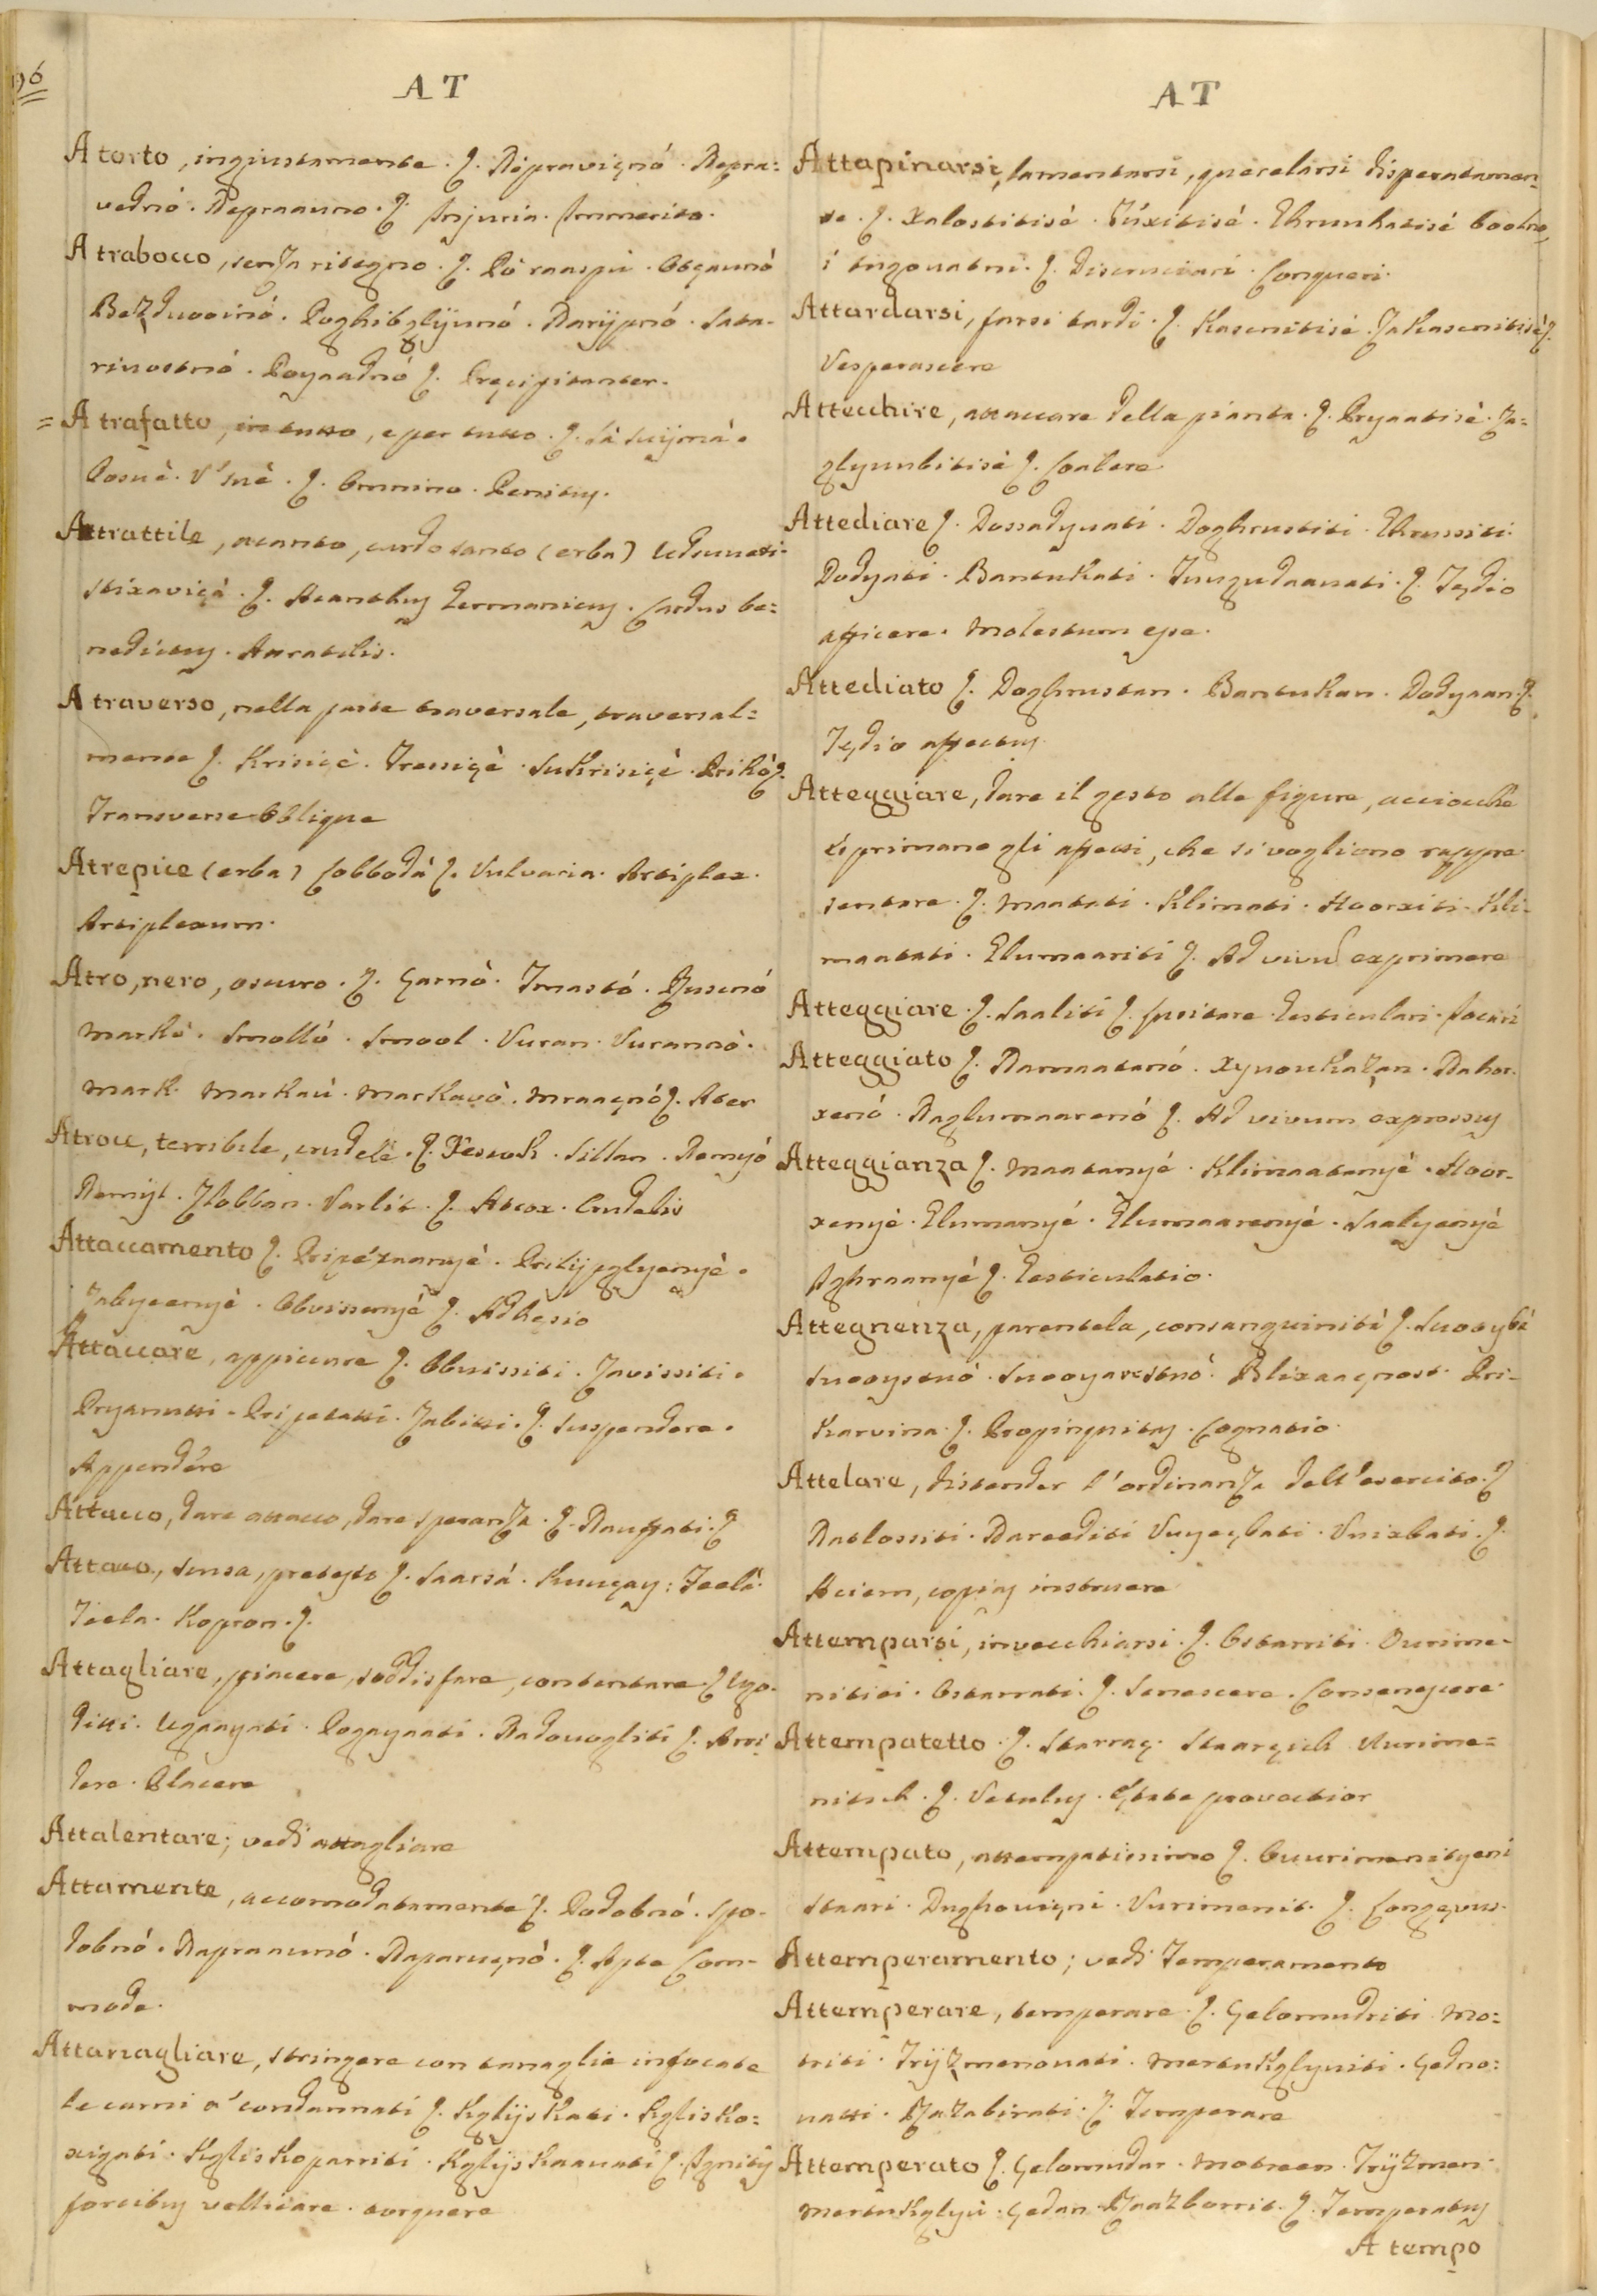 96
A T
A torto, ingiustamente. ſ. Nipravignó. Nepra=
vednó. Nepraauno. ſ. Injuria. Immerito.
A trabocco, senza ritegno. ſ. Pó raaspu. Obçaunó
Bezduooinó. Poghibglijunó. Narijpnó. Sata-
rivostnó. Poguadnó ſ. Præcipitanter.
= A trafatto, in tutto, e per tutto. ſ. Sà suijmà.
Posuè. V'suè. ſ. Omnino. Penitus.
Attrattile, acanto, cardo santo (erba)
stixaviçà. ſ. Acanthus Germanicus. Cardus be=
nedictus. Atratilis.
A traverso, nella parte traversale, traversal=
mente ſ. Krisiçè. Tressiçè. Sukrisiçè. Prikò ſ.
Transverse Oblique
Atrepice (erba) Lobbodà ſ. Vulvaria. Artiplex.
Artiplexum.
Atro, nero, oscuro. ſ. Çarnò. Tmastó. Musenó
Markò. Smolló. Smool. Vuran. Vurannò.
Mark. Markaù. Markavò. Mraaçnó ſ. Ater
Atroce, terribile, crudele. ſ. Xestok. Sillan. Remyó
Remyt. Zlobban. Varlit. ſ. Atrox. Crudelis
Attaccamento ſ. Pripéznanyè. Prilijpglyenyè.
Zabyeenyè. Obvissenyè ſ. Adhesio
Attaccare, appiccare ſ. Obuissiti. Zavissiti.
Pryanutti. Pripetatti. Zabitti. ſ. Suspendere.
Appendére
Attacco, dare attacco, dare speranza. ſ. Nauffati. ſ.
Attacco, scusa, pretesto ſ. Saarsá. Kuuçay: Teelà.
Teela. Kopron. ſ.
Attagliare, piacere, soddisfare, contentare ſ Ugo.
ditti. Ugaayati. Pogayaati. Nadouogliti ſ. Arri
dere. Placere
Attalentare; vedi attagliare
Attamente, accomodatamente ſ. Podobnó. Spo-
dobnó. Napraaunó. Naparuçnò. ſ. Apte Com-
mode.
Attanagliare, stringere con tanaglie infocate
le carni a' condannati ſ. Kglijskati. Kglisko=
xigati. Kgliskoparriti. Kglijskaauati ſ. Ignitis
forcibus vellicare. torquere
A T
Attapinarsi, lamentarsi, querelarsi disperatamen=
te. ſ. Xalostitisè. Túxitisè. Thrunhatisè boolno,
i tugouatni. ſ. Discruciari. Conqueri.
Attardarsi, farsi tardi. ſ. Kasenitisè. Zakasenitisè ſ.
Vesperascere
Attecchire, attaccare della pianta. ſ. Pryaatisè. Za=
glyunbitisè ſ. Coalere
Attediare ſ. Dossadyuati. Doghrustiti. Thrussiti
Dodyati. Bantukati. Tuugudaauati. ſ. Tædio
afficere. Molestum esse.
Attediato ſ. Doghrustan. Bantukan. Dodyaan. ſ.
Tædio affectus
Atteggiare, dare il gesto alle figure, acciocchè
esprimano gli affetti, che si vogliono rappre-
sentare. ſ. Maatati. Klimati. Hoorxiti. Kli-
maatati. Glumaariti ſ. Ad vivum exprimere
Atteggiare. ſ. Saaliti ſ. Lusitare. Gesticulari. Jocari
Atteggiato ſ. Narmaatanó. Xyuoukazan. Nahor.
xenó. Naglumaarenó ſ. Ad vivum expressus
Atteggianza ſ. Maatanyé. Klimaatanyè. Hoor-
xenyè. Glumanyé. Glumaarenyé. Saalyenyè
Ighraanyé ſ. Gesticulatio.
Attegnenza, parentela, consanguinità ſ. Suooybé
Suooystuó. Suooyarestuó. Blixaaçnost. Pri-
karvina. ſ. Propinquitas. Cognatio
Attelare, distender l'ordinanza dell'esercito. ſ
Natlossiti. Nareediti Vuyexbati. Vuixbati. ſ.
Aciem, copias instruere
Attemparsi, invecchiarsi. ſ. Ostarriti. Ourime-
nititi. Ostarrati. ſ. Senescere. Consenescere
Attempatetto. ſ. Starraç. Staarçich Vurime=
nitich. ſ. Vetulus. Ætate provectior
Attempato, attempatissimo ſ. Ouurimenityeni
Staari. Dughouiçni. Vurimenit. ſ. Longævus.
Attemperamento; vedi Temperamento
Attemperare, temperare. ſ. Çelomudriti Mo=
triti. Trijzmenouati. Mertukglyuiti. Gedno=
uatti. Razabirati. ſ. Temperare
Attemperato ſ. Çelomudar. Motreen. Trijzmen.
Mertukglyù. Gedan. Raazborrit. ſ. Temperatus
A tempo